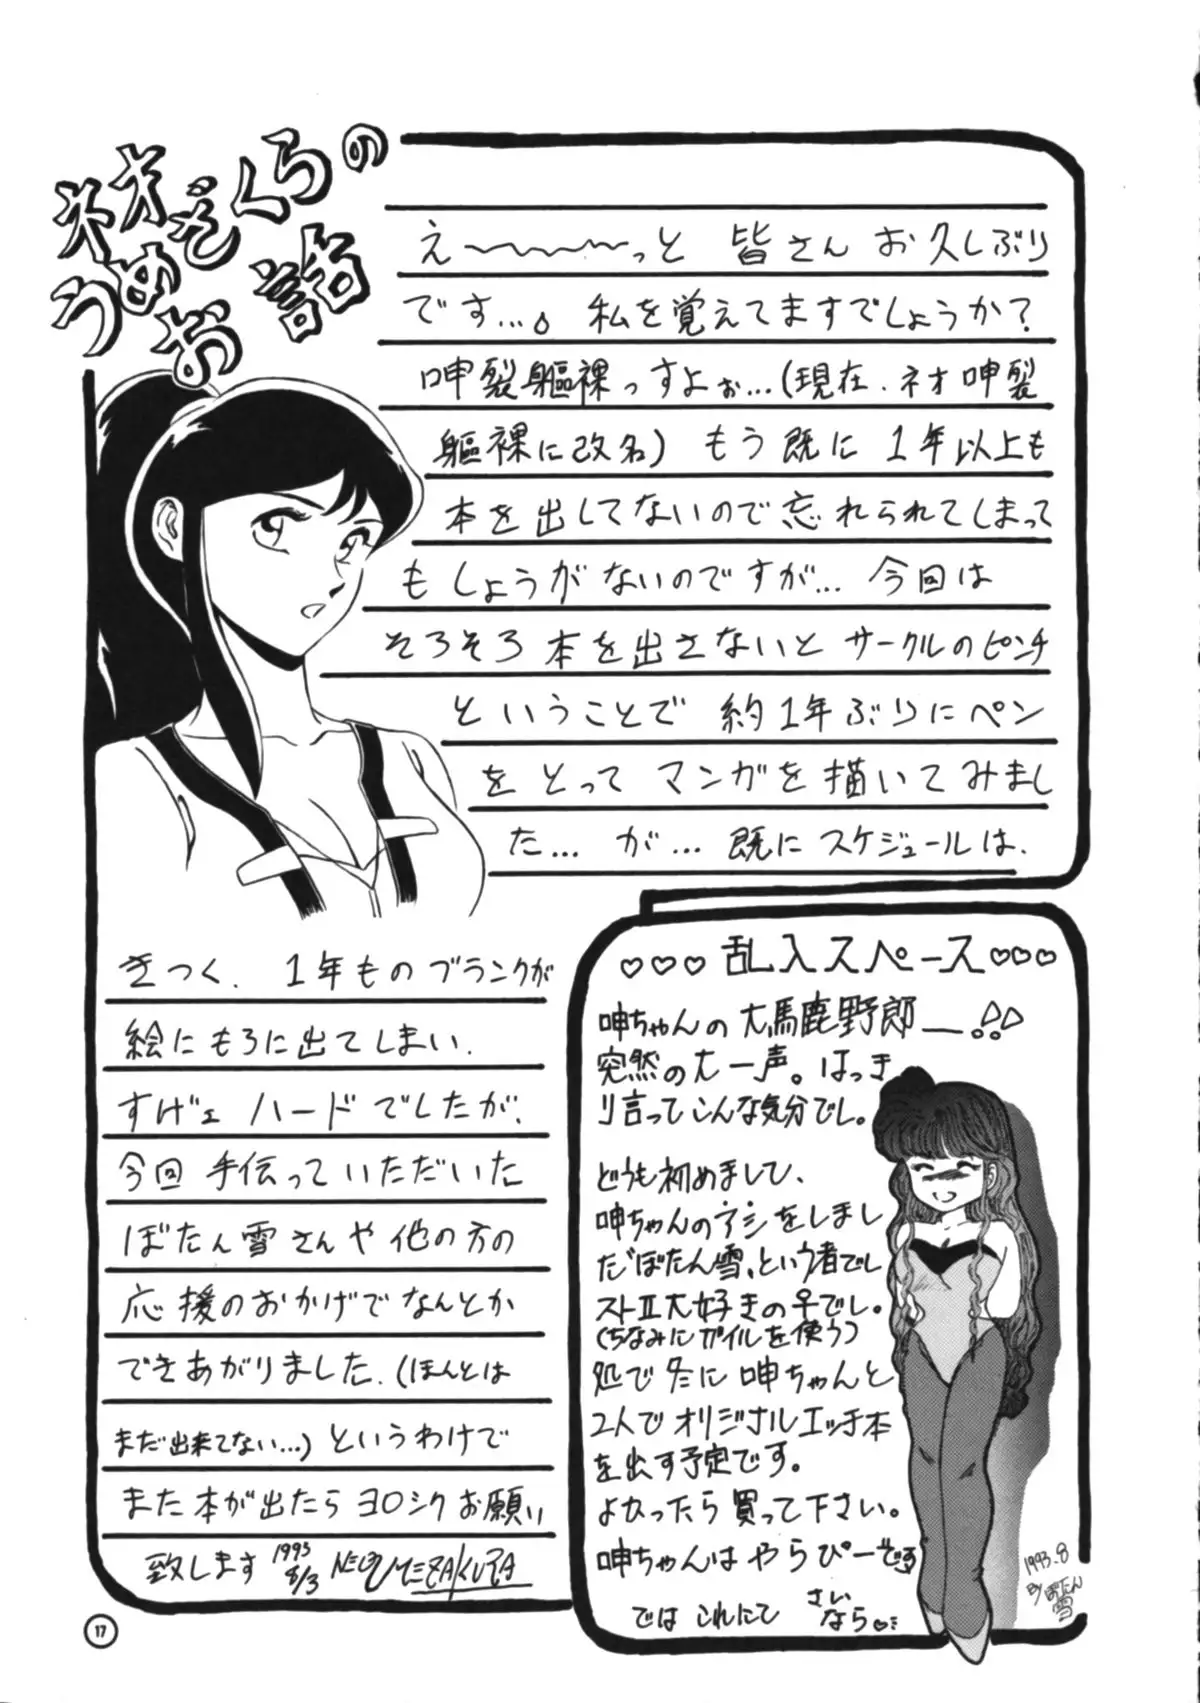 ネオ
うめざくらの
お話
え〜〜〜〜っと 皆さん お久しぶり
です…。私を覚えてますでしょうか?
呻裂軀裸っすよぉ…(現在、ネオ呻裂
軀裸に改名) もう既に 1年以上も
本を出してないので忘れられてしまって
もしょうがないのですが… 今回は
そろそろ本を出さないと サークルのピンチ
ということで 約1年ぶりにペン
を とって マンガを描いてみまし
た… が… 既に スケジュールは、
きつく、1年ものブランクが
絵にもろに出てしまい、
すげェ ハード でしたが、
今回 手伝って いただいた
ぼたん雪さんや他の方の
応援のおかげでなんとか
できあがりました。(ほんとは
まだ出来てない…) というわけで
また本が出たら ヨロシク お願い
致します 1993 8/3 NEO UMEZAKURA
♡♡♡ 乱入スペース ♡♡♡
呻ちゃんの 大馬鹿野郎—!!
突然の大一声。はっき
り言ってこんな気分でし。
どうも初めまして、
呻ちゃんのアシをしまし
た"ぼたん雪"という者でし
ストⅡ大好きの♀でし。
(ちなみにガイルを使う)
処で冬に 呻ちゃんと
2人でオリジナルエッチ本
を出す予定です。
よかったら買って下さい。
呻ちゃんは やらぴーぞです
では これにて さいなら♡
1993.8
By ぼたん雪
17